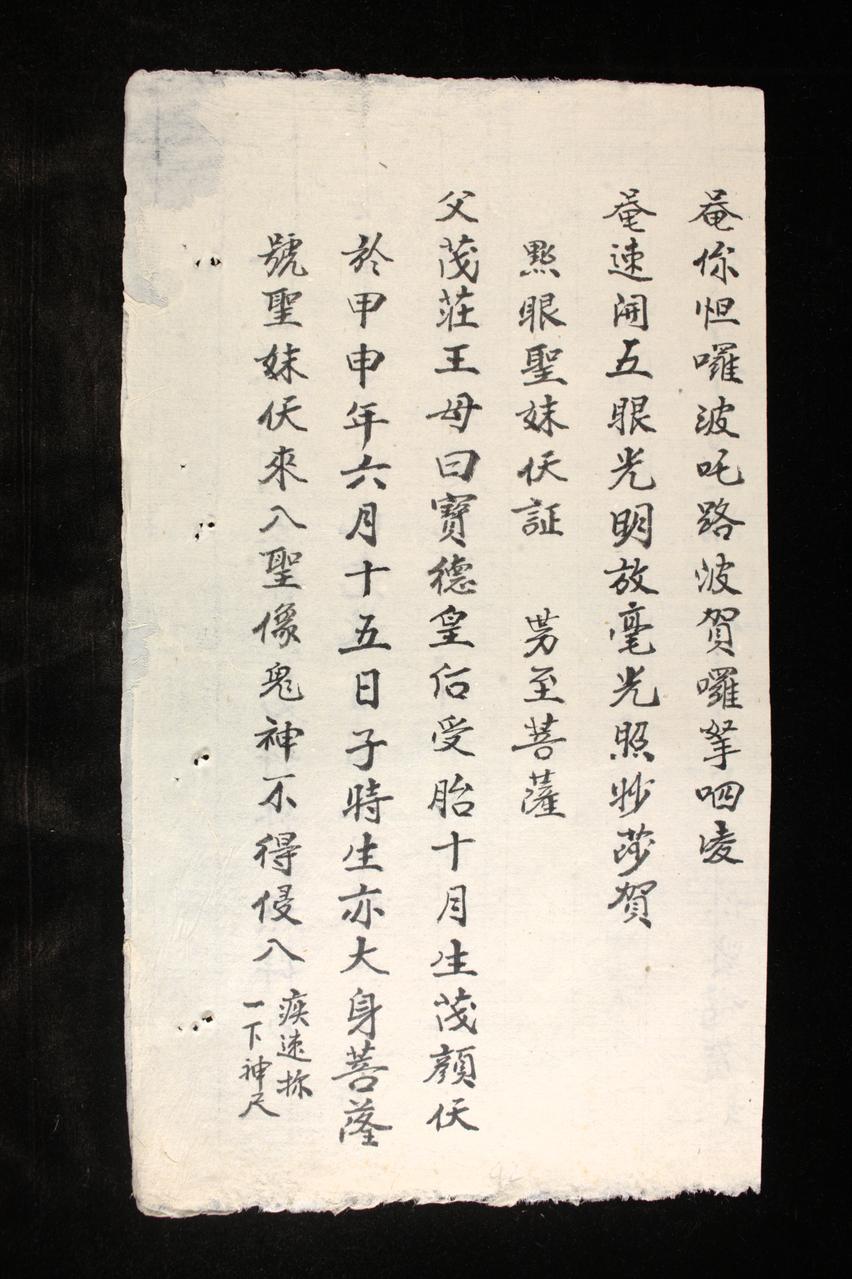 菴你怛囉波吒路波賀囉拏呬凌
菴速開五眼光明放毫光照炒莎賀
點眼聖妹仸証 势至菩薩
父茂莊王母曰寶德皇后受胎十月生茂顏仸
於甲申年六月十五日子時生亦大身菩薩
號聖妹仸來入聖像鬼神不得侵入
疾速捺
一下神尺